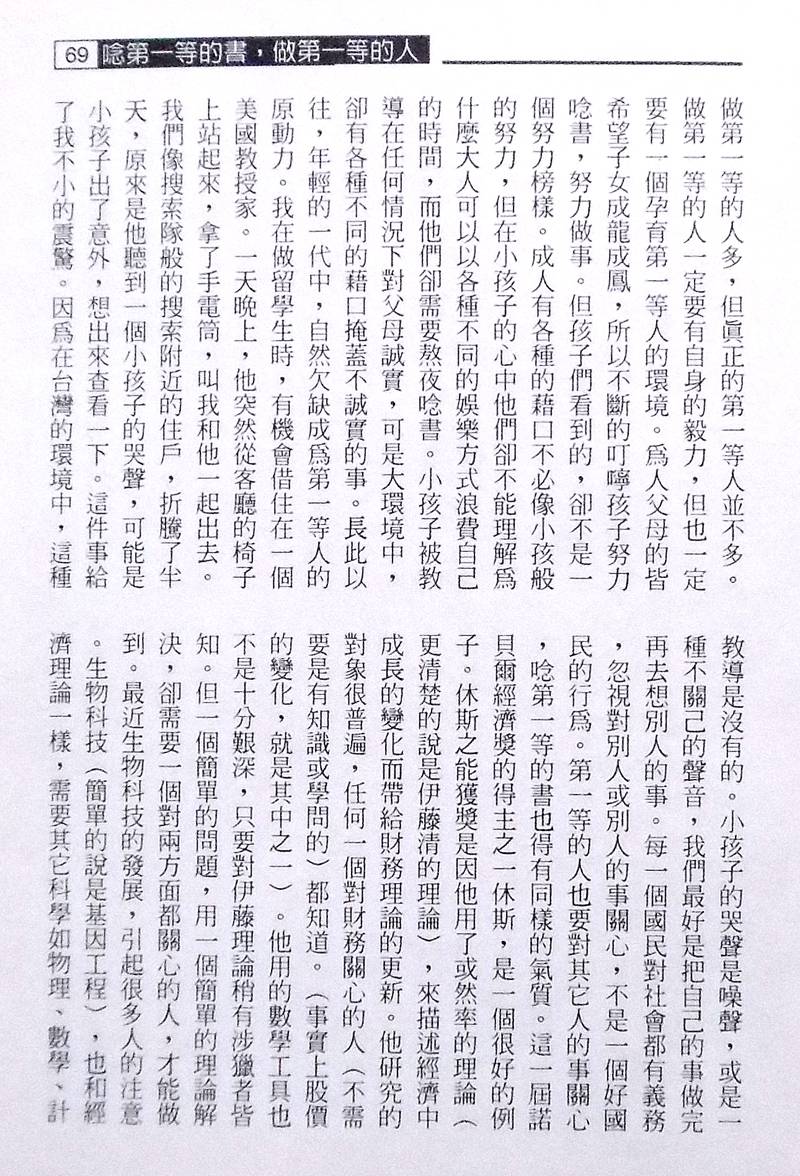 69 唸第一等的書，做第一等的人
做第一等的人多，但眞正的第一等人並不多。
做第一等的人一定要有自身的毅力，但也一定
要有一個孕育第一等人的環境。爲人父母的皆
希望子女成龍成鳳，所以不斷的叮嚀孩子努力
唸書，努力做事。但孩子們看到的，卻不是一
個努力榜樣。成人有各種的藉口不必像小孩般
的努力，但在小孩子的心中他們卻不能理解爲
什麼大人可以以各種不同的娛樂方式浪費自己
的時間，而他們卻需要熬夜唸書。小孩子被教
導在任何情況下對父母誠實，可是大環境中，
卻有各種不同的藉口掩蓋不誠實的事。長此以
往，年輕的一代中，自然欠缺成爲第一等人的
原動力。我在做留學生時，有機會借住在一個
美國教授家。一天晚上，他突然從客廳的椅子
上站起來，拿了手電筒，叫我和他一起出去。
我們像搜索隊般的搜索附近的住戶，折騰了半
天，原來是他聽到一個小孩子的哭聲，可能是
小孩子出了意外，想出來查看一下。這件事給
了我不小的震驚。因爲在台灣的環境中，這種
教導是沒有的。小孩子的哭聲是噪聲，或是一
種不關己的聲音，我們最好是把自己的事做完
再去想別人的事。每一個國民對社會都有義務
，忽視對別人或別人的事關心，不是一個好國
民的行爲。第一等的人也要對其它人的事關心
，唸第一等的書也得有同樣的氣質。這一屆諾
貝爾經濟獎的得主之一休斯，是一個很好的例
子。休斯之能獲獎是因他用了或然率的理論（
更清楚的說是伊藤清的理論），來描述經濟中
成長的變化而帶給財務理論的更新。他研究的
對象很普遍，任何一個對財務關心的人（不需
要是有知識或學問的）都知道。（事實上股價
的變化，就是其中之一）。他用的數學工具也
不是十分艱深，只要對伊藤理論稍有涉獵者皆
知。但一個簡單的問題，用一個簡單的理論解
決，卻需要一個對兩方面都關心的人，才能做
到。最近生物科技的發展，引起很多人的注意
。生物科技（簡單的說是基因工程），也和經
濟理論一樣，需要其它科學如物理、數學、計